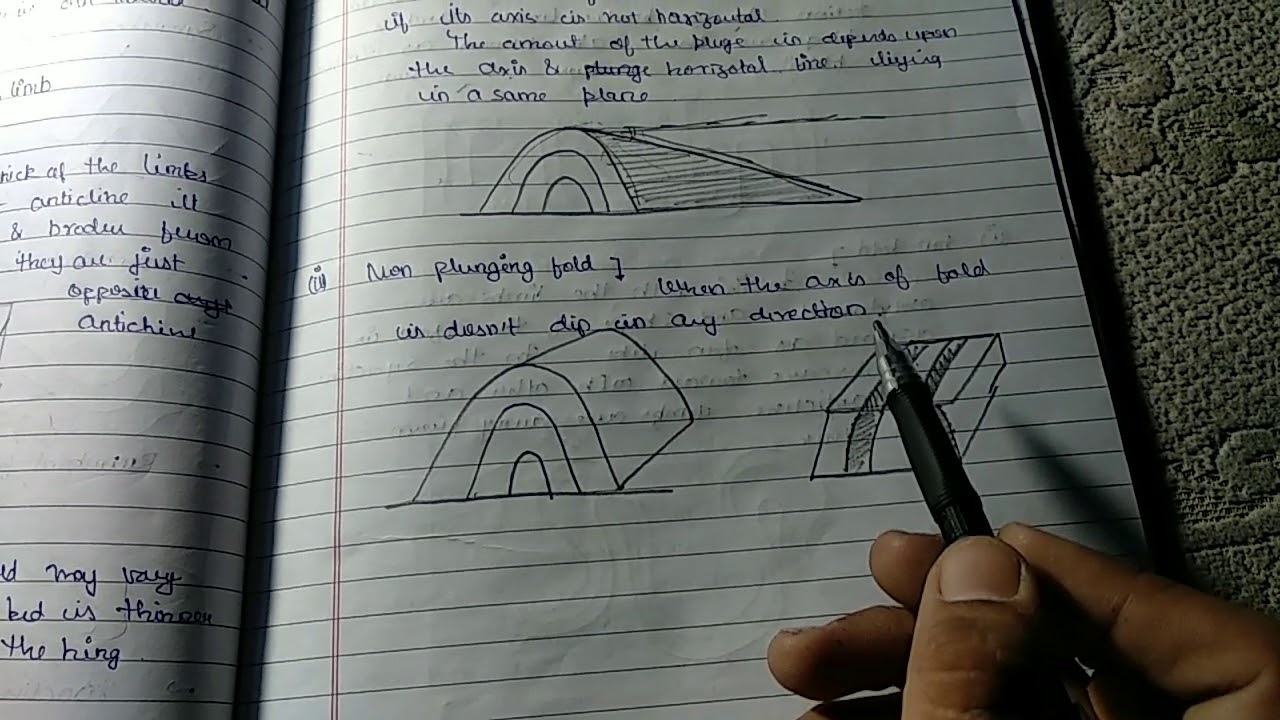 limb
rick of the limbs
anticline ill
& broden
they are just
opposite
antichine
ld may vary
bed is thinner
the hing
if its axis is not harizontal
The amout of the pluge in depends upon
the axis & plunge horizotal line liying
in a same plane
(ii) Non plunging fold ] When the axis of fold
is doesn't dip in any direction.